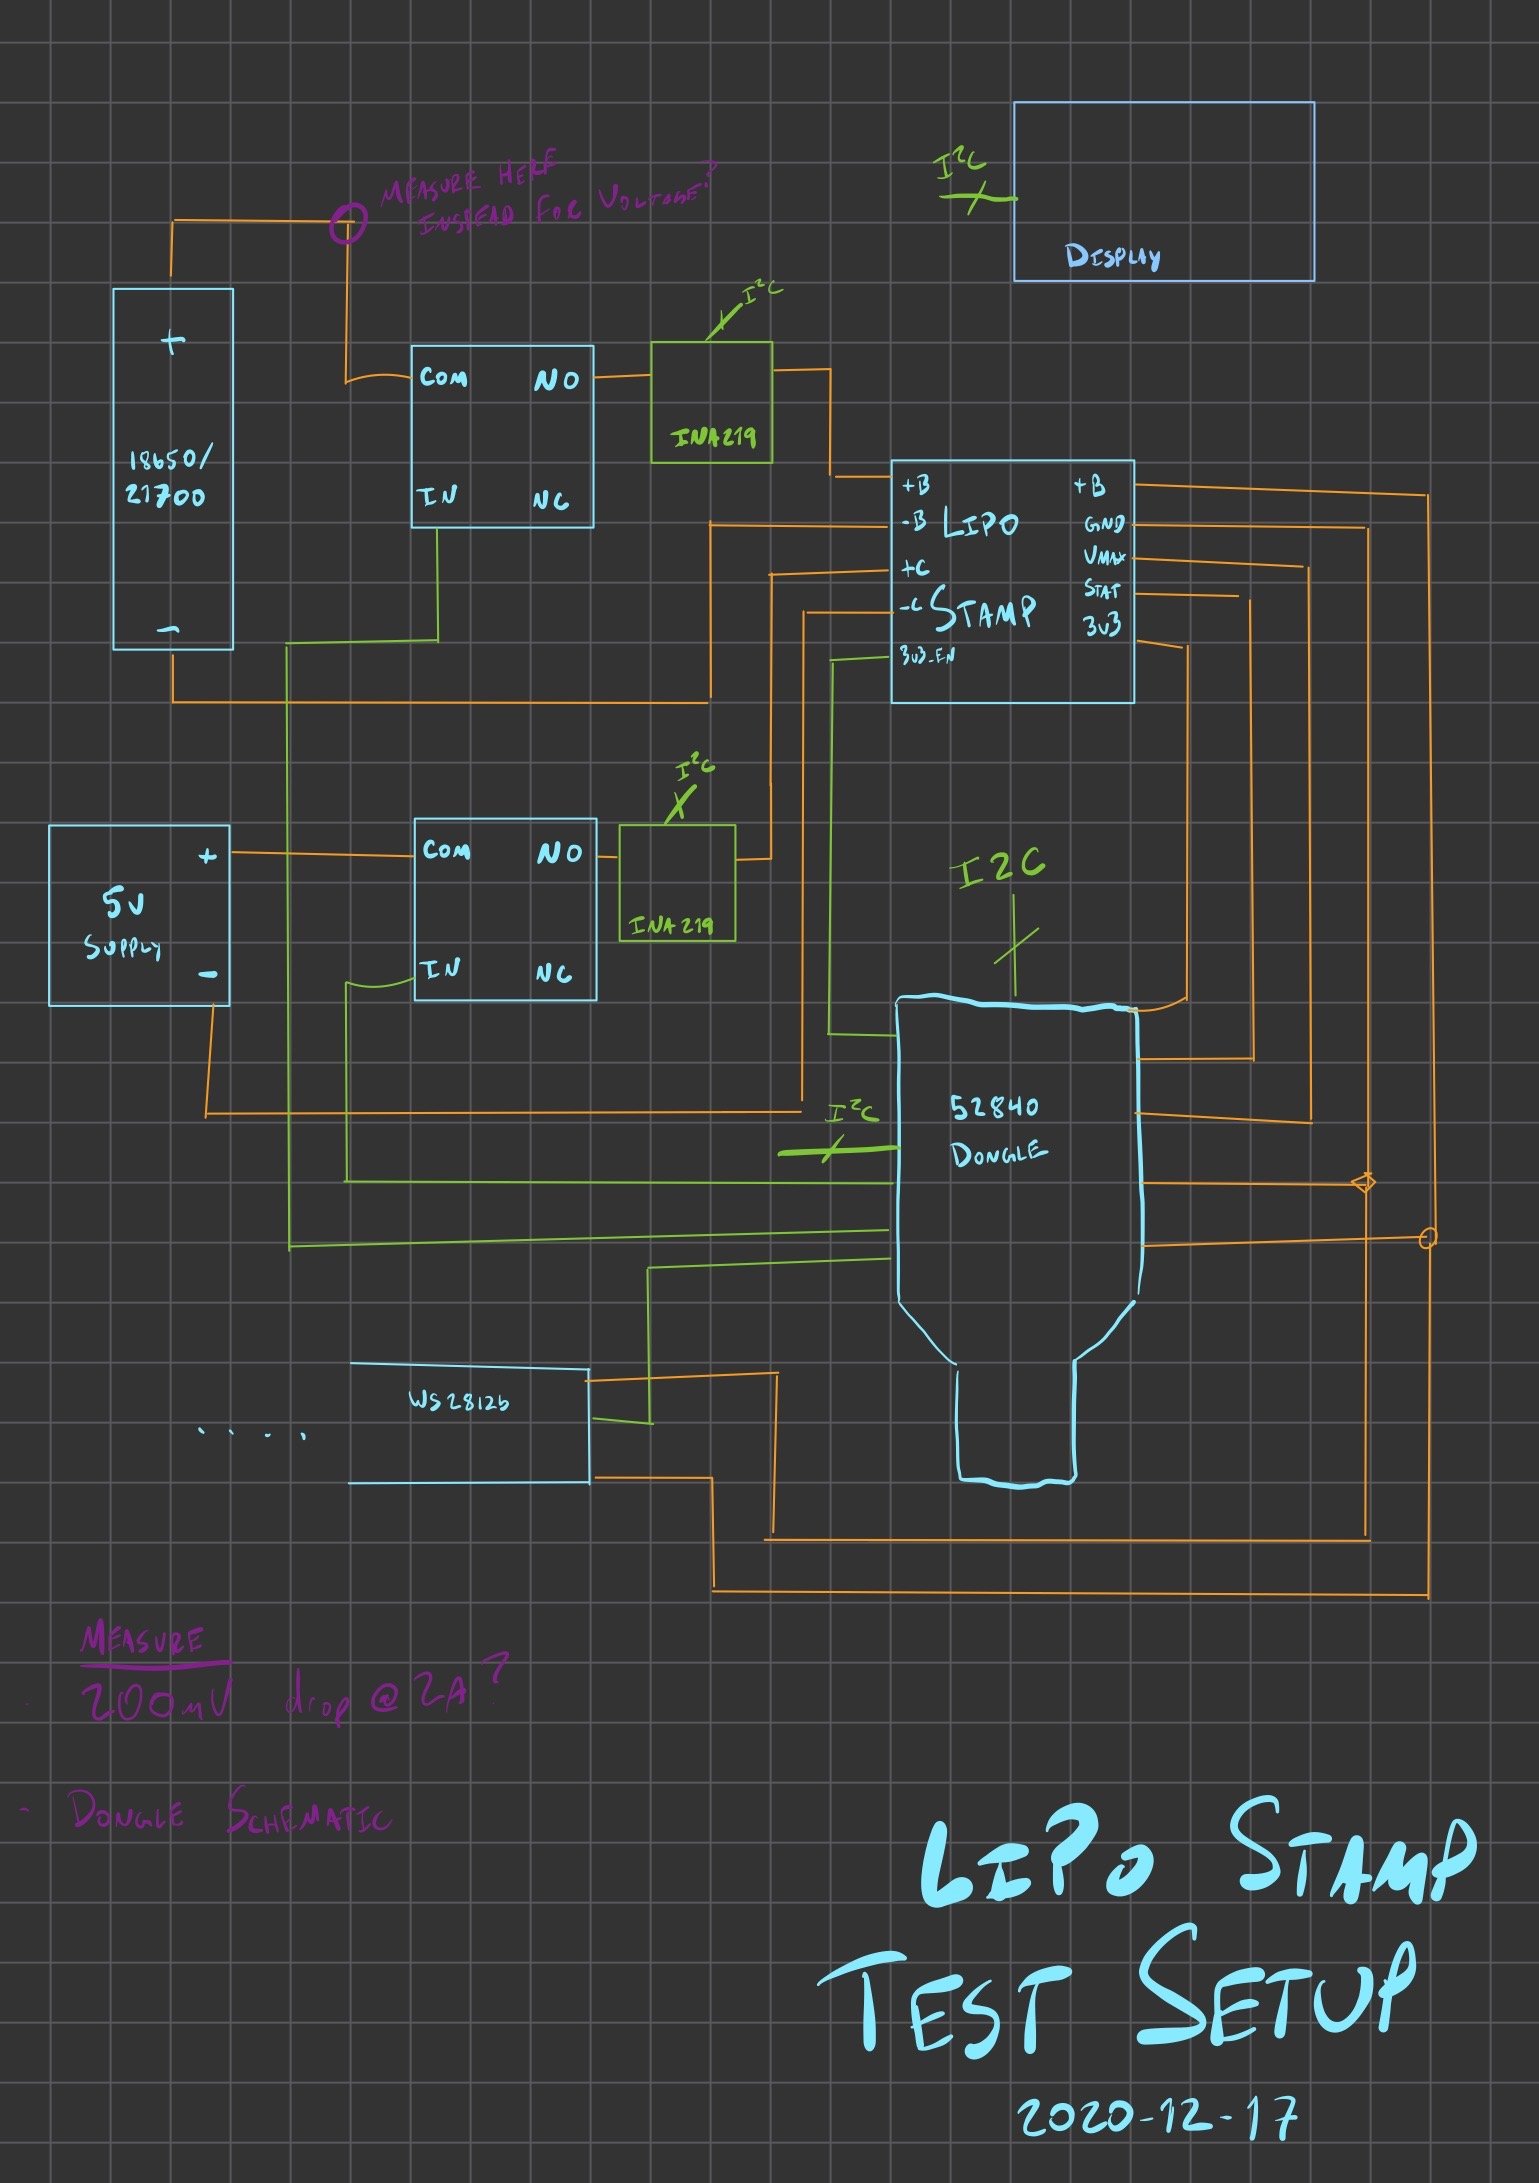 I²C
DISPLAY
MEASURE HERE
INSPEAD FOR VOLTAGE?
+
18650/
21700
-
COM NO
IN NC
I²C
INA219
+B +B
-B LIPO GND
+C VMAX
-C STAMP STAT
3V3
3V3_EN
5V
SUPPLY
+
-
COM NO
IN NC
I²C
INA219
I2C
52840
DONGLE
I²C
WS2812b
....
MEASURE
200mV drop @ 2A?
- DONGLE SCHEMATIC
LIPO STAMP
TEST SETUP
2020-12-17